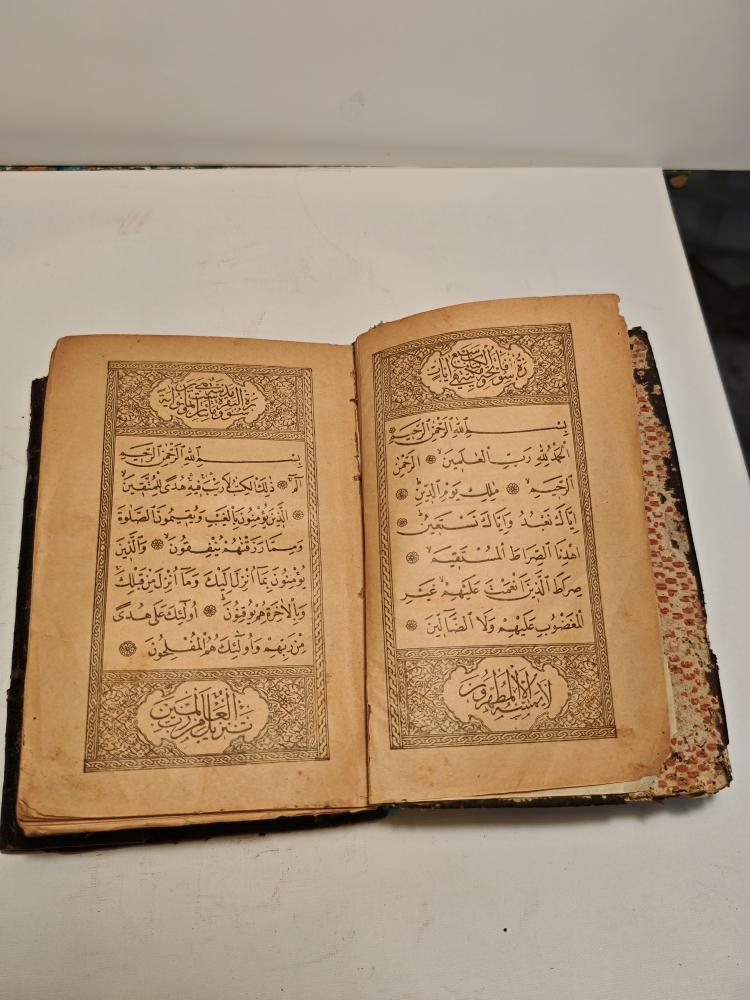 سورة فاتحة الكتاب وهي سبع آيات
بِسْمِ اللهِ الرَّحْمٰنِ الرَّحِيمِ
اَلْحَمْدُ لِلّٰهِ رَبِّ الْعٰلَمِينَ ۝ الرَّحْمٰنِ
الرَّحِيمِ ۝ مٰلِكِ يَوْمِ الدِّينِ ۝
اِيَّاكَ نَعْبُدُ وَاِيَّاكَ نَسْتَعِينُ ۝
اِهْدِنَا الصِّرَاطَ الْمُسْتَقِيمَ ۝
صِرَاطَ الَّذِينَ اَنْعَمْتَ عَلَيْهِمْ غَيْرِ
الْمَغْضُوبِ عَلَيْهِمْ وَلَا الضَّالِّينَ ۝
لَا يَمَسُّهُ اِلَّا الْمُطَهَّرُونَ
سورة البقرة
بِسْمِ اللهِ الرَّحْمٰنِ الرَّحِيمِ
الٓمٓ ۝ ذٰلِكَ الْكِتٰبُ لَا رَيْبَ فِيهِ هُدًى لِلْمُتَّقِينَ
۝ الَّذِينَ يُؤْمِنُونَ بِالْغَيْبِ وَيُقِيمُونَ الصَّلٰوةَ
وَمِمَّا رَزَقْنٰهُمْ يُنْفِقُونَ ۝ وَالَّذِينَ
يُؤْمِنُونَ بِمَا اُنْزِلَ اِلَيْكَ وَمَا اُنْزِلَ مِنْ قَبْلِكَ
وَبِالْاٰخِرَةِ هُمْ يُوقِنُونَ ۝ اُولٰٓئِكَ عَلٰى هُدًى
مِنْ رَبِّهِمْ وَاُولٰٓئِكَ هُمُ الْمُفْلِحُونَ ۝
تَنْزِيلٌ مِنْ رَبِّ الْعٰلَمِينَ